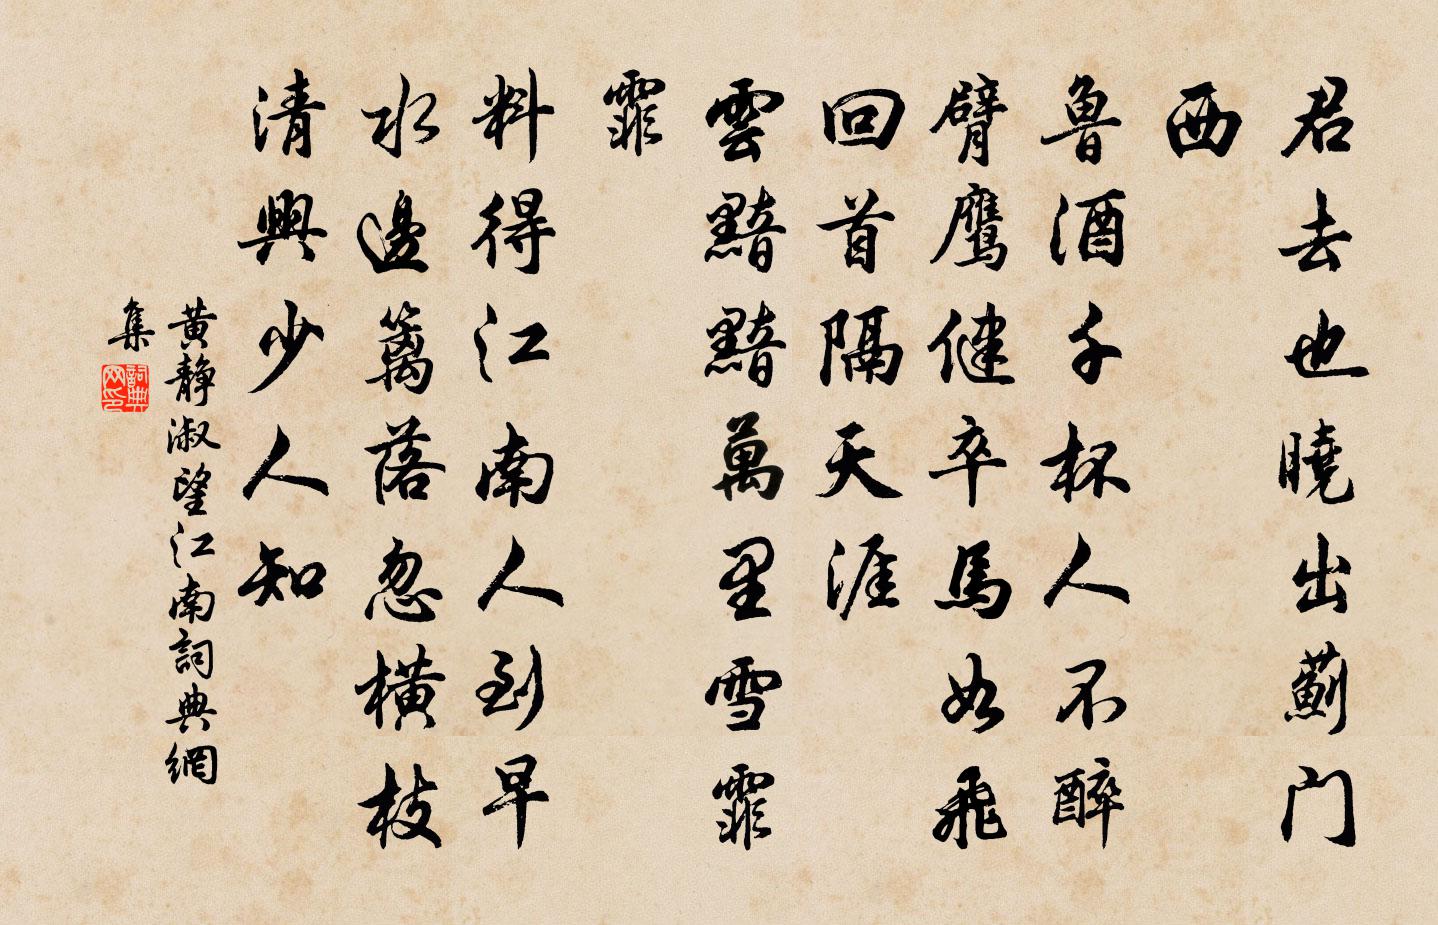 君去也曉出薊门
西
魯酒千杯人不醉
臂鹰健卒馬如飛
回首隔天涯
雲黯黯萬里雪霏
霏
料得江南人到早
水邊篱落忽横枝
清興少人知
黄静淑望江南詞典網
集
詞典网印